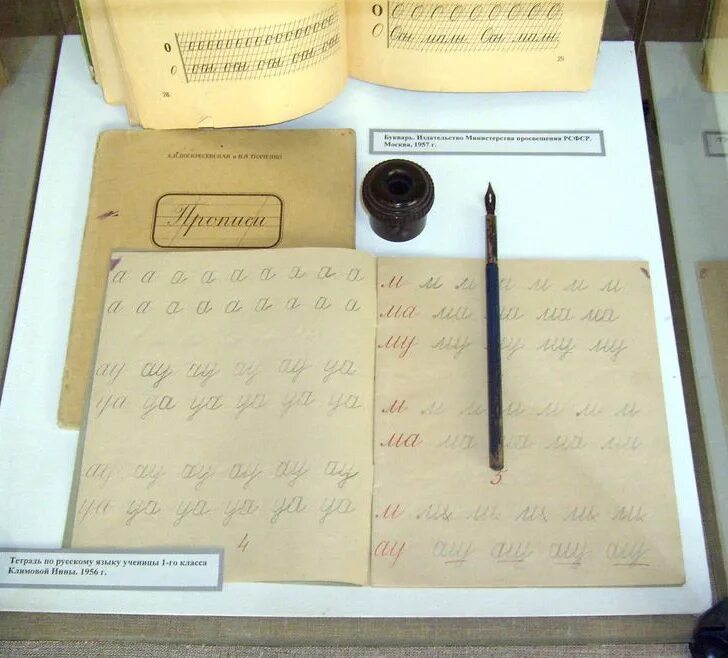 о о о о о о о о о о
о Осы Осы Осы Осы
28
О О О О О О О О О
О Осы малы. Осы малы.
29
Букварь. Издательство Министерства просвещения РСФСР.
Москва, 1957 г.
Прописи
а а а а а а а а а
а а а а а а а а а
ау ау ау ау ау уа
уа уа уа уа уа уа
ау ау ау ау ау ау
уа уа уа уа уа уа
4
м м м м м м м
ма ма ма ма ма
му му му му му
м м м м м м м
ма ма ма ма ма
5
м
ау ау ау ау ау
Тетрадь по русскому языку ученицы 1-го класса
Климовой Нины. 1956 г.